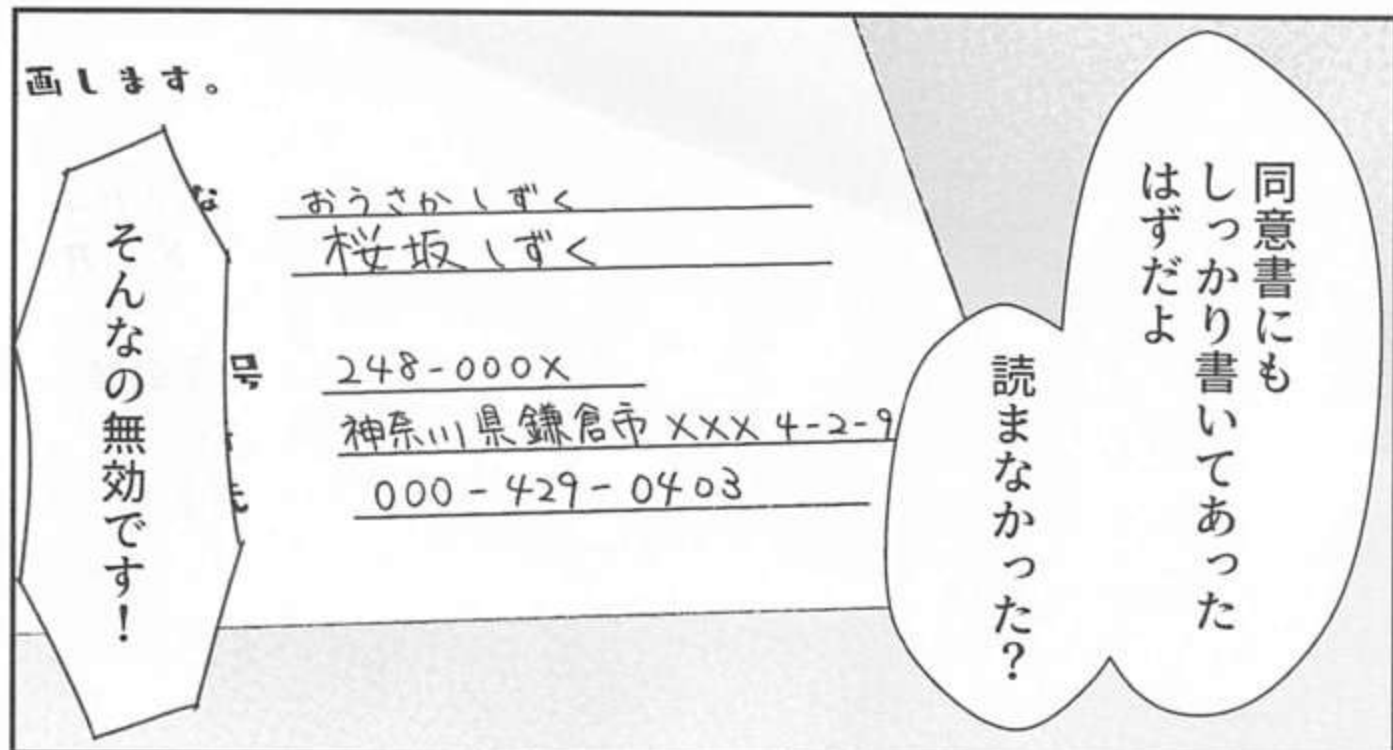 同意書にも
しっかり書いてあった
はずだよ
読まなかった?
画します。
な
おうさかしずく
桜坂しずく
号
248-000X
神奈川県鎌倉市XXX4-2-9
000-429-0403
そんなの無効です!